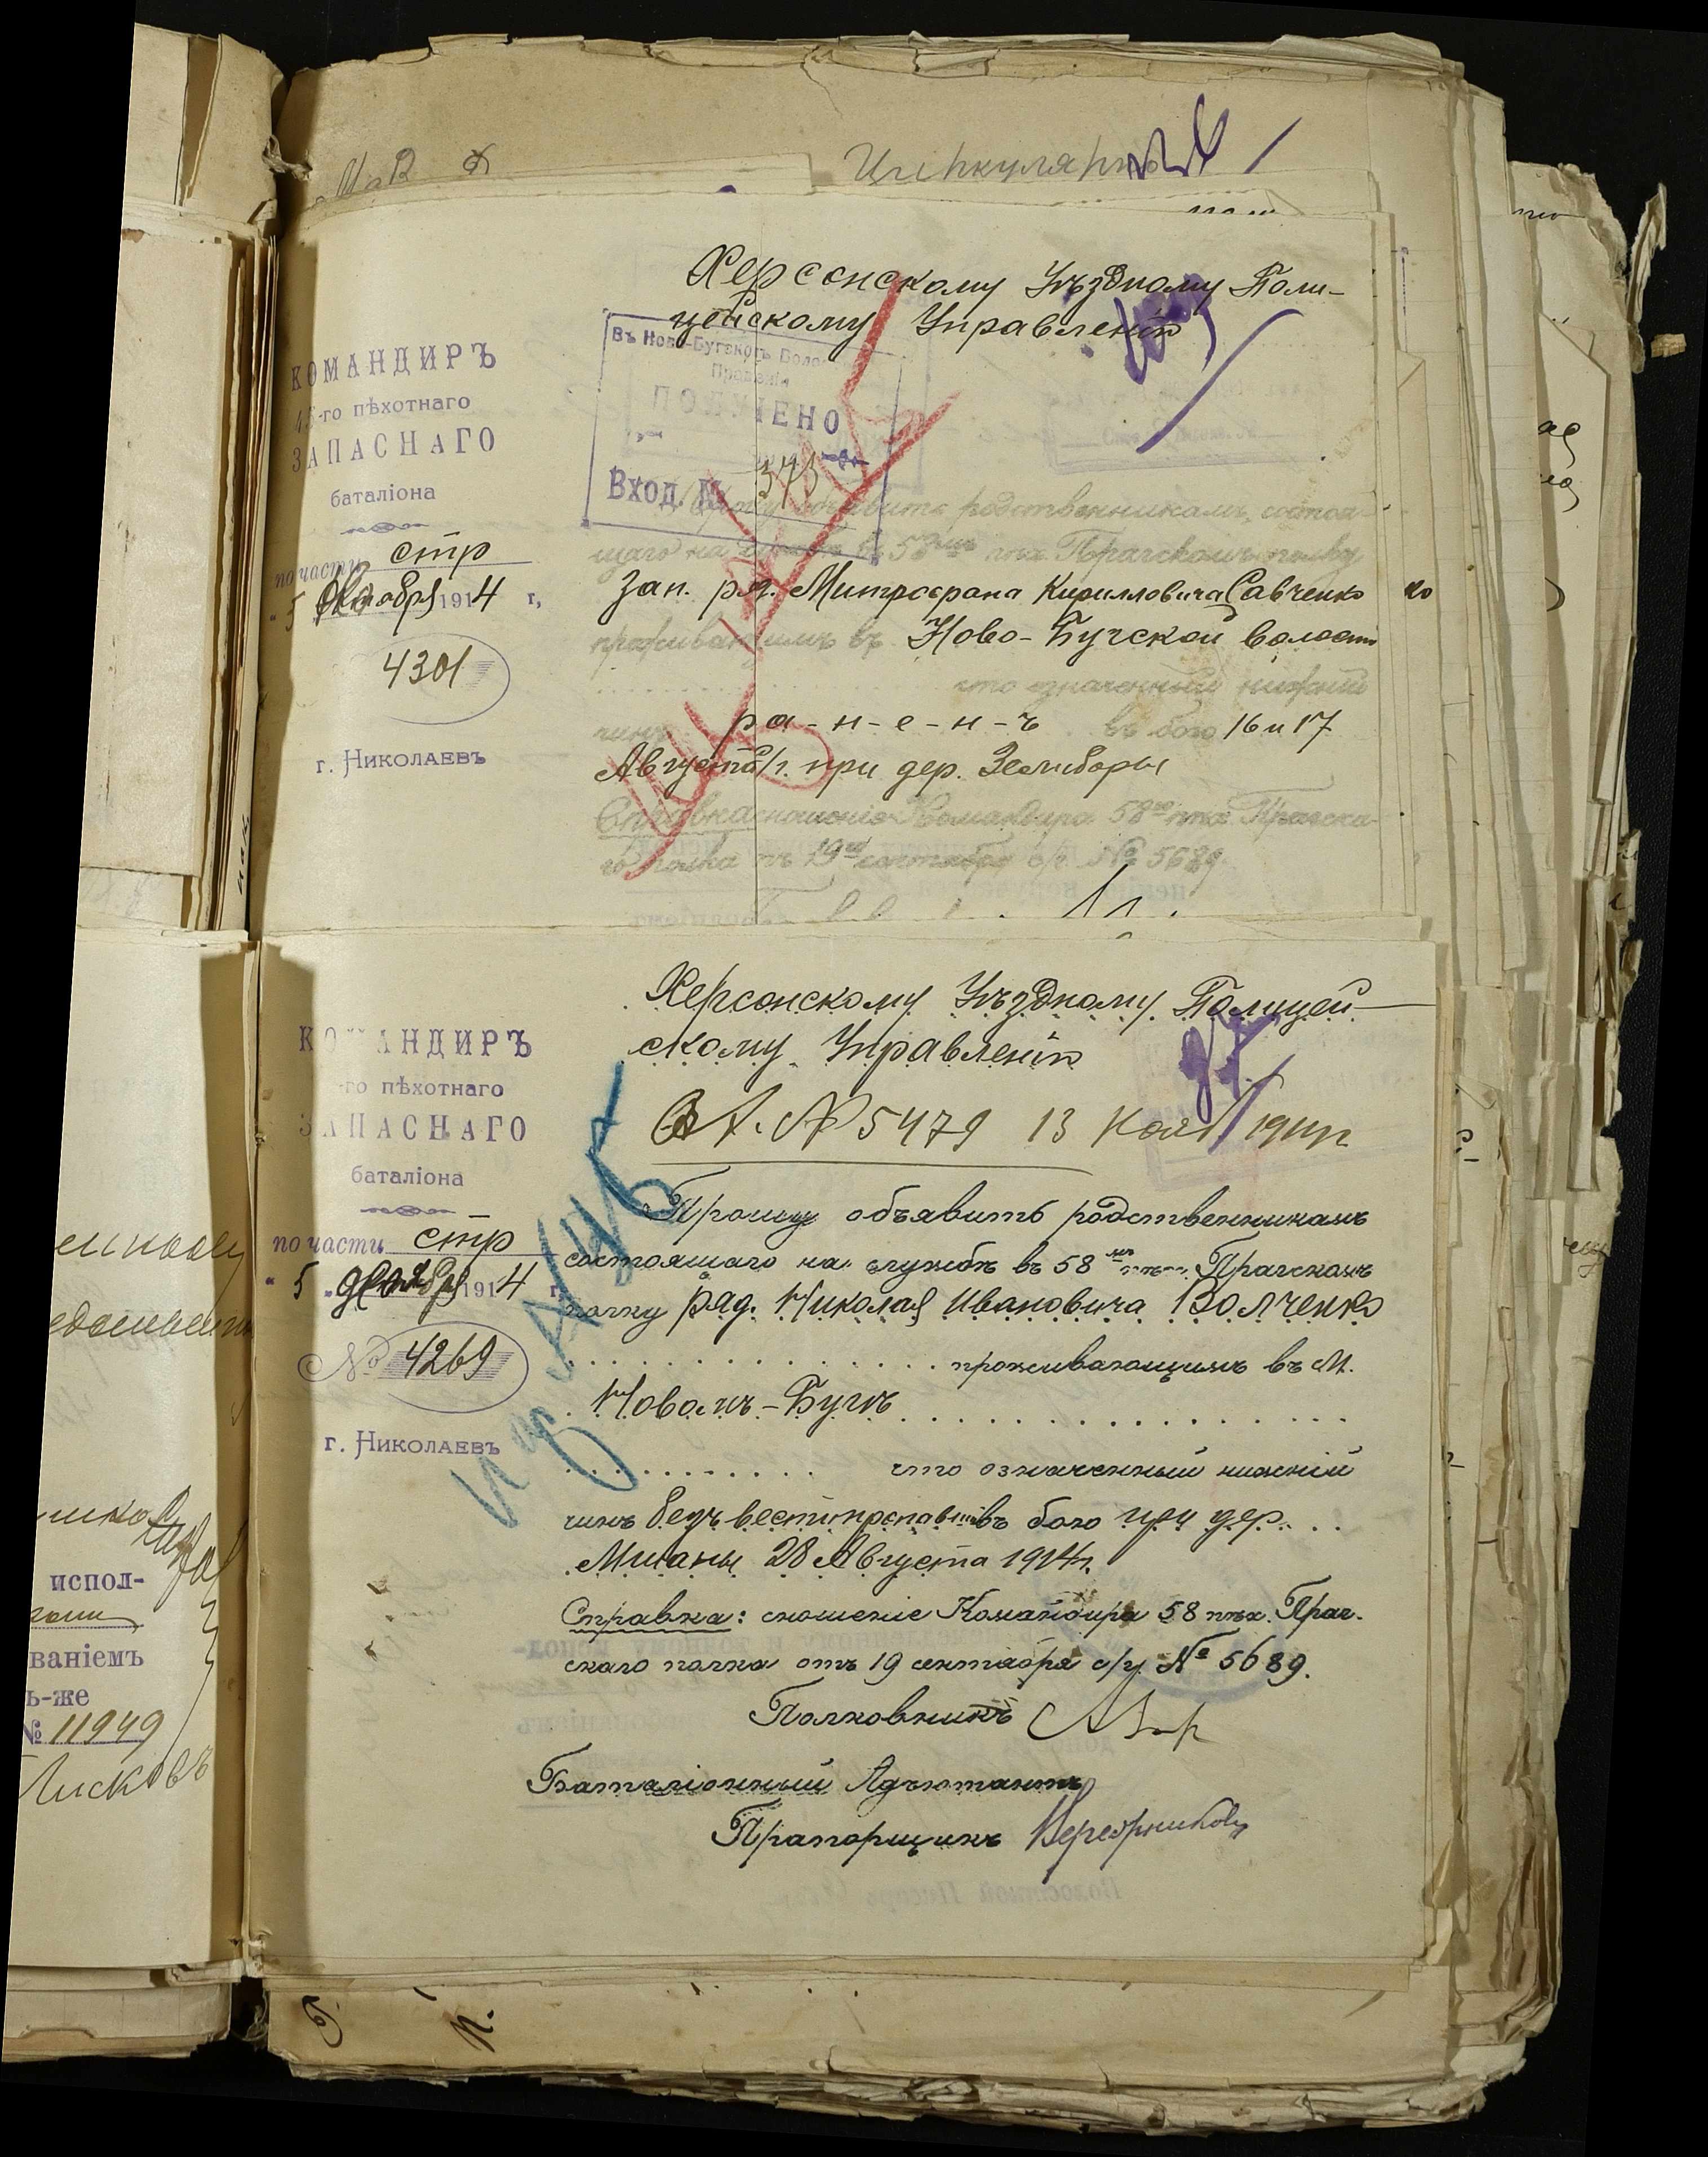 Циркулярно
Херсонскому Уѣздному Поли-
цейскому Управленію
КОМАНДИРЪ
45-го пѣхотнаго
ЗАПАСНАГО
баталіона
по части стр
„5 Октября 1914 г.
4301
г. НИКОЛАЕВЪ
Въ Ново-Бугскомъ Волос
Правленіи
ПОЛУЧЕНО
Вход. №
Прошу объявить родственникамъ, состоя-
щаго на службѣ въ 58мъ пѣх Прагскомъ полку
Зап. ряд. Митрофана Кирилловича Савченко
проживающимъ въ Ново-Бугской волости
что означенный нижній
чинъ ра-н-е-н-ъ въ бою 16 и 17
Августа с/г. при дер. Зелиборы
Справка: сношеніе Командира 58го пѣх Прагска-
го полка отъ 19го сентября с/г № 5689.
Херсонскому Уѣздному Полицей-
скому Управленію
КОМАНДИРЪ
-го пѣхотнаго
ЗАПАСНАГО
баталіона
по части стр
„5 „ 1914 г.
№ 4269
г. НИКОЛАЕВЪ
№ 5479 13 1914 г
Прошу объявить родственникамъ
состоящаго на службѣ въ 58мъ пѣх. Прагскомъ
полку ряд. Николая Ивановича Волченко
проживающимъ въ м.
Новомъ-Бугѣ
что означенный нижній
чинъ безъ вести пропавшій въ бою при дер.
Мшаны 28 Августа 1914 г.
Справка: сношеніе Командира 58 пѣх. Праг-
скаго полка отъ 19 сентября с/г № 5689.
Полковникъ
Баталіонный Адъютантъ
Прапорщикъ
испол-
ваніемъ
ъ-же
№ 11949
Лисковъ